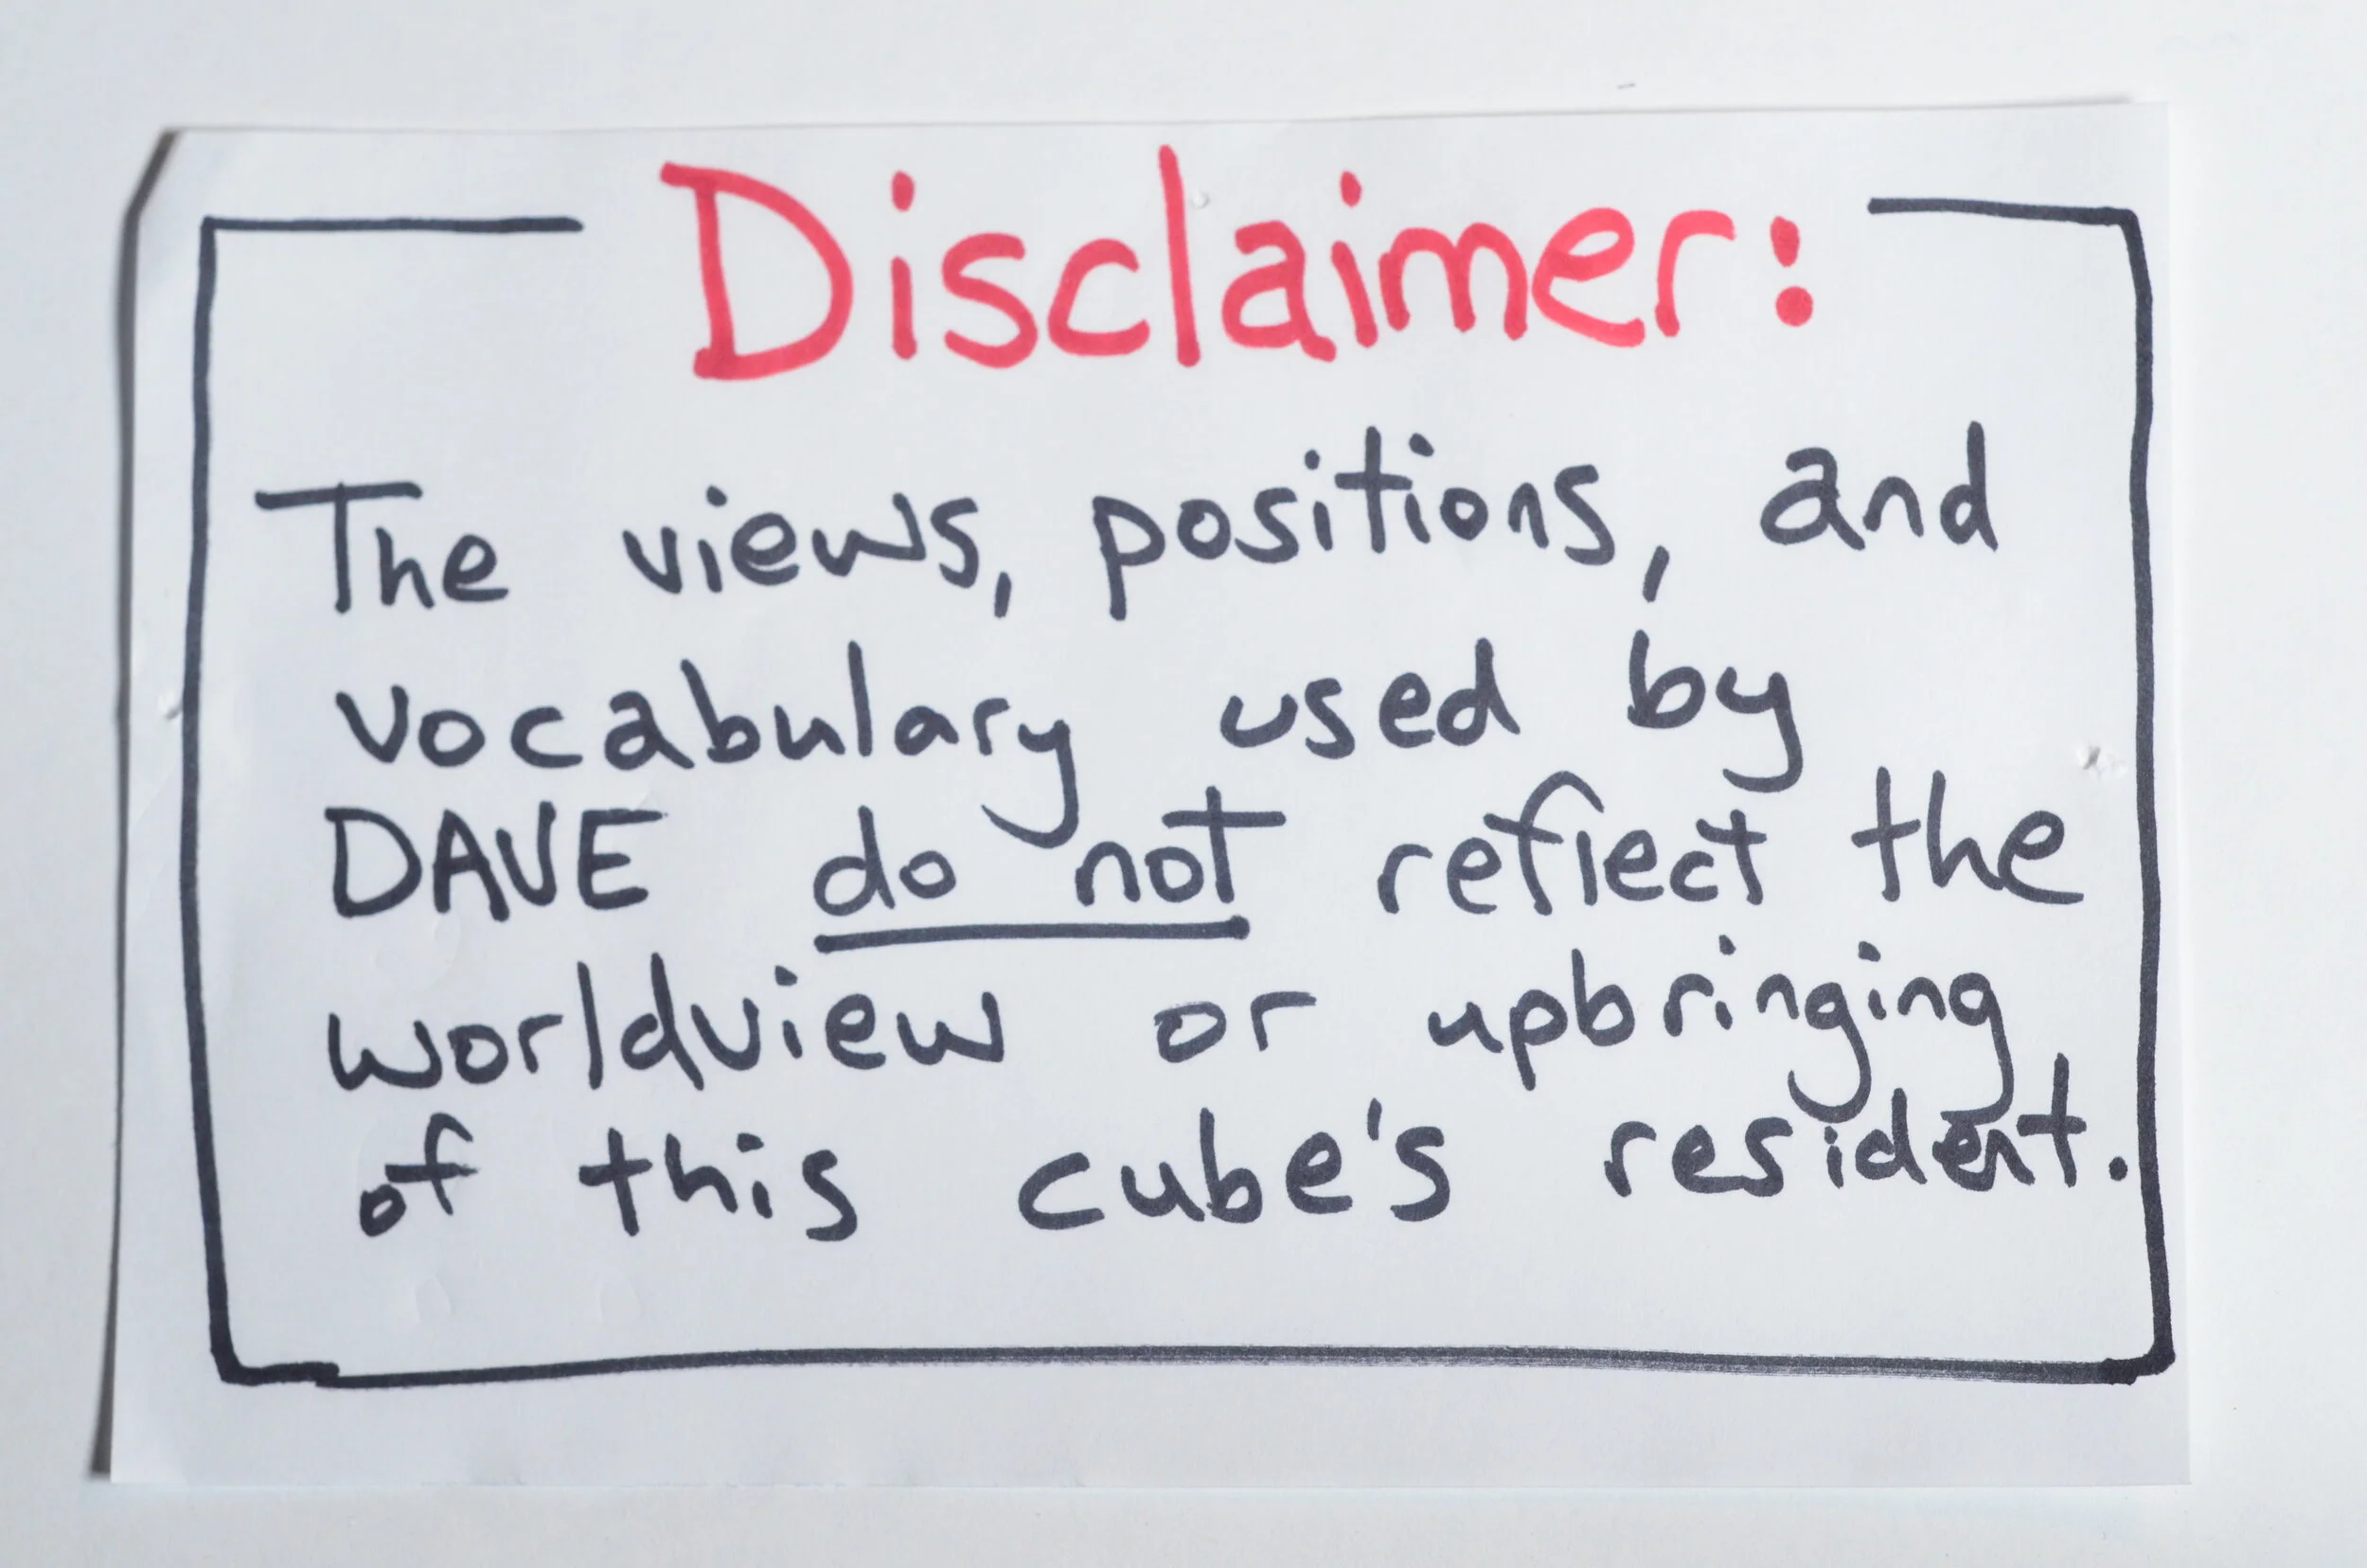 Disclaimer:
The views, positions, and
vocabulary used by
DAVE do not reflect the
worldview or upbringing
of this cube's resident.